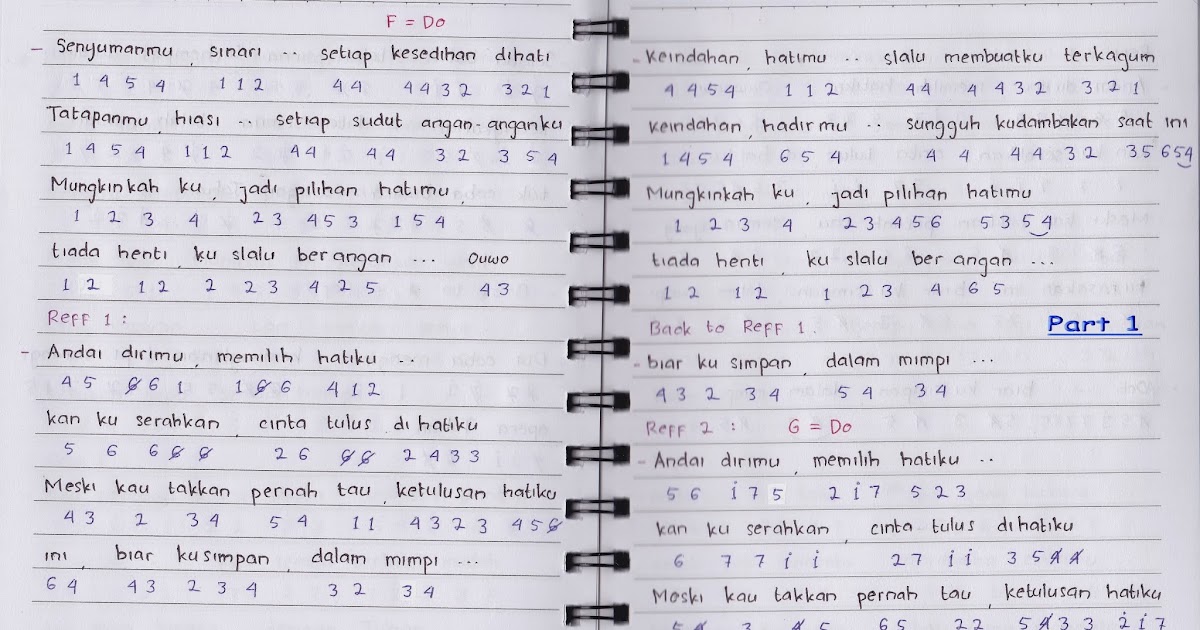 F = Do
- Senyumanmu, sinari .. setiap kesedihan dihati
1 4 5 4 1 1 2 4 4 4 4 3 2 3 2 1
Tatapanmu, hiasi .. setiap sudut angan-anganku
1 4 5 4 1 1 2 4 4 4 4 3 2 3 5 4
Mungkinkah ku, jadi pilihan hatimu
1 2 3 4 2 3 4 5 3 1 5 4
tiada henti, ku slalu ber angan ... ouwo
1 2 1 2 2 2 3 4 2 5 4 3
Reff 1 :
- Andai dirimu, memilih hatiku ..
4 5 6̸ 6 1 1 6̸ 6 4 1 2
kan ku serahkan, cinta tulus di hatiku
5 6 6 6̸ 6̸ 2 6 6̸ 6̸ 2 4 3 3
Meski kau takkan pernah tau, ketulusan hatiku
4 3 2 3 4 5 4 1 1 4 3 2 3 4 5 6̸
ini, biar kusimpan, dalam mimpi ...
6 4 4 3 2 3 4 3 2 3 4
- Keindahan, hatimu .. slalu membuatku terkagum
4 4 5 4 1 1 2 4 4 4 4 3 2 3 2 1
Keindahan, hadirmu .. sungguh kudambakan saat ini
1 4 5 4 6 5 4 4 4 4 4 3 2 3 5 6 5 4
Mungkinkah ku, jadi pilihan hatimu
1 2 3 4 2 3 4 5 6 5 3 5 4
tiada henti, ku slalu ber angan ...
1 2 1 2 1 2 3 4 6 5
Back to Reff 1 : Part 1
- biar ku simpan, dalam mimpi ...
4 3 2 3 4 5 4 3 4
Reff 2 : G = Do
- Andai dirimu, memilih hatiku ..
5 6 i 7 5 2 i 7 5 2 3
kan ku serahkan, cinta tulus dihatiku
6 7 7 i i 2 7 i i 3 5 4̸ 4̸
Meski kau takkan pernah tau, ketulusan hatiku
5 4̸ 3 4̸ 5 6 5 2 2 5 4̸ 3 3 2 i 7